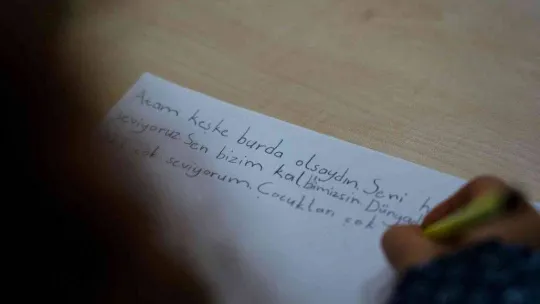 Atam keşke burda olsaydın. Seni
seviyoruz Sen bizim kalbimizsin. Dünyad
çok seviyorum. Çocukları çok